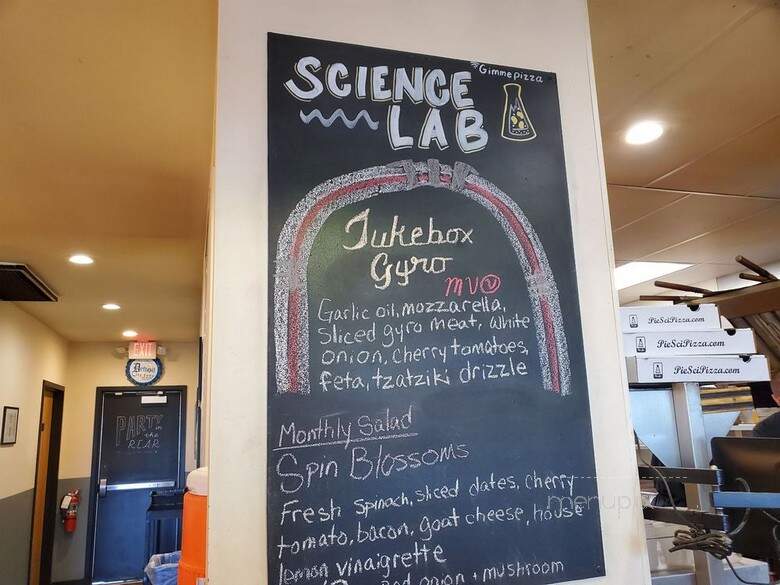 #Gimmepizza
SCIENCE
LAB
Jukebox
Gyro
MVⓋ
Garlic oil, mozzarella,
sliced gyro meat, white
onion, cherry tomatoes,
feta, tzatziki drizzle
Monthly Salad
Spin Blossoms
Fresh spinach, sliced dates, cherry
tomato, bacon, goat cheese, house
lemon vinaigrette
onion + mushroom
EXIT
Detroit
PARTY
in
the
REAR
PieSciPizza.com
PieSciPizza.com
PieSciPizza.com
menupix